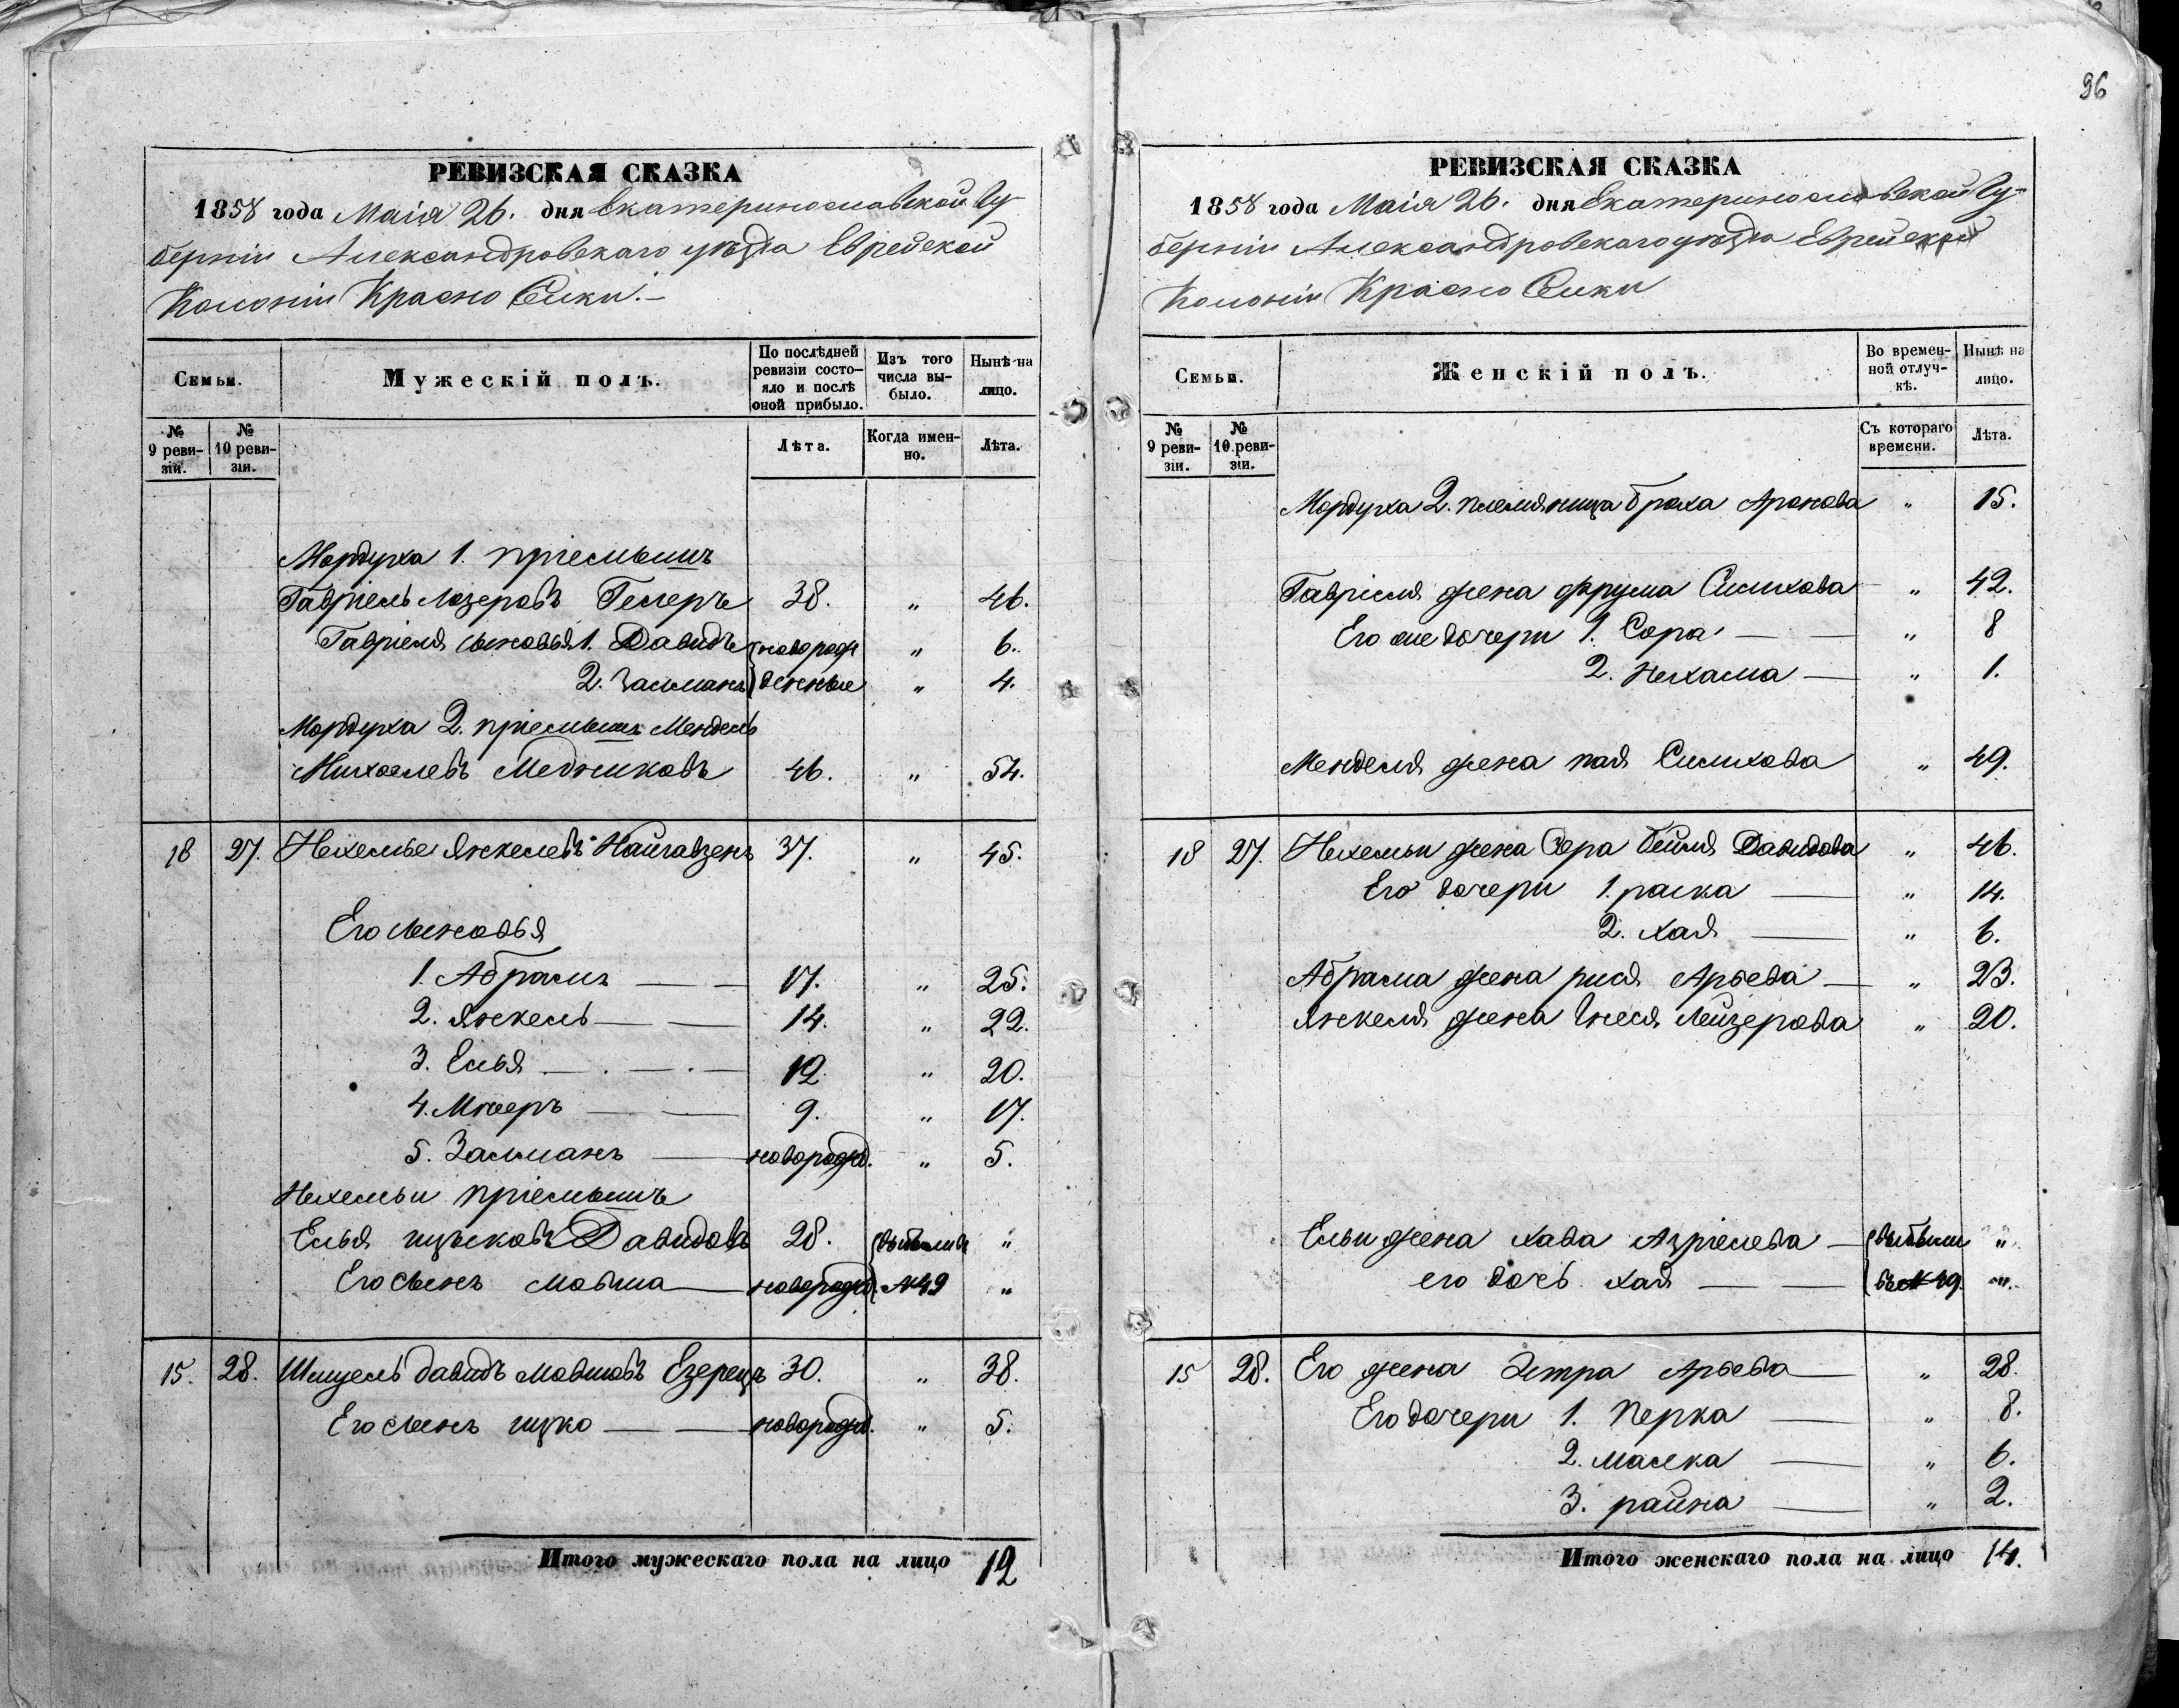 96
РЕВИЗСКАЯ СКАЗКА
1858 года Маія 26. дня Екатеринославской Гу-
берніи Александровскаго уѣзда Еврейской
Колоніи Красно Селки.-
Семьи.
Мужескій полъ.
По послѣдней ревизіи состо-
яло и послѣ оной прибыло.
Изъ того числа вы-
было.
Нынѣ на лицо.
№ 9 реви-
зіи.
№ 10 реви-
зіи.
Лѣта.
Когда имен-
но.
Лѣта.
Мордуха 1. пріемышъ
Гавріель Лазеровъ Гелеръ 38. " 46.
Гавріеля сыновья 1. Давидъ новорож " 6.
2. Залманъ денные " 4.
Мордуха 2. пріемышъ Мендель
Михоелевъ Медниковъ 46. " 54.
18 27. Нехемье Янкелевъ Найгавзенъ 37. " 45.
Его сыновья
1. Абрамъ — — 17. " 25.
2. Янкель — — 14. " 22.
3. Елья — . — . — 12 " 20.
4. Мееръ — — 9. " 17.
5. Залманъ — новорожд. " 5.
Нехемьи пріемышъ
Елья ицьковъ Давидовъ 28. выбыли въ "
Его сынъ Мовша — новорожд. №49 "
15. 28. Шмуель давидъ Мовшовъ Езерецъ 30. " 38.
Его сынъ ицко — — новорожд. " 5.
Итого мужескаго пола на лицо 12
РЕВИЗСКАЯ СКАЗКА
1858 года Маія 26. дня Екатеринославской Гу-
берніи Александровскаго уѣзда Еврейской
Колоніи Красно Селки
Семьи.
Женскій полъ.
Во времен-
ной отлуч-
кѣ.
Нынѣ на лицо.
№ 9 реви-
зіи.
№ 10 реви-
зіи.
Съ котораго времени.
Лѣта.
Мордуха 2. племяница броха Аронова " 15.
Гавріеля жена фрума Силихова " 42.
Его же дочери 1. Сора — — " 8
2. Нехама — " 1.
Менделя жена пая Силихова " 49.
18 27. Нехемьи жена Сора бейля Давидова " 46.
Его дочери 1. раска — " 14.
2. хая — " 6.
Абрама жена рися Арьева — " 23.
Янкеля жена Гнеся Лейзерова " 20.
Ельи жена хава Азріелева — выбыли "
его дочь хая — — въ №49. "
15 28. Его жена Эстра Арьева — " 28.
Его дочери 1. перка — " 8.
2. малка — " 6.
3. райна — " 2.
Итого женскаго пола на лицо 14.